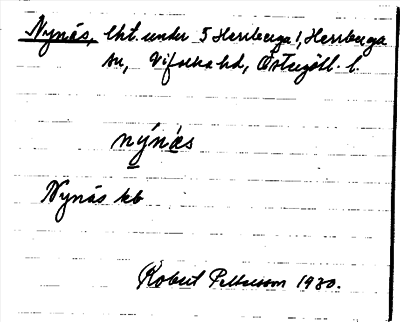 Nynäs, lht. under 5 Herrberga 1, Herrberga
sn, Vifolka hd, Östergötl. l.
nýnäs
Nynäs kb
Robert Pettersson 1930.